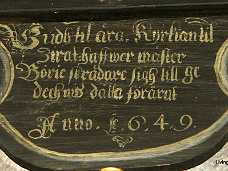 Gudh til ära, Kyrkian til
Zirat haffwer mäster
Börie skrädare sigh till ge
dechnis dätta förärat
Anno. 1649.
Living